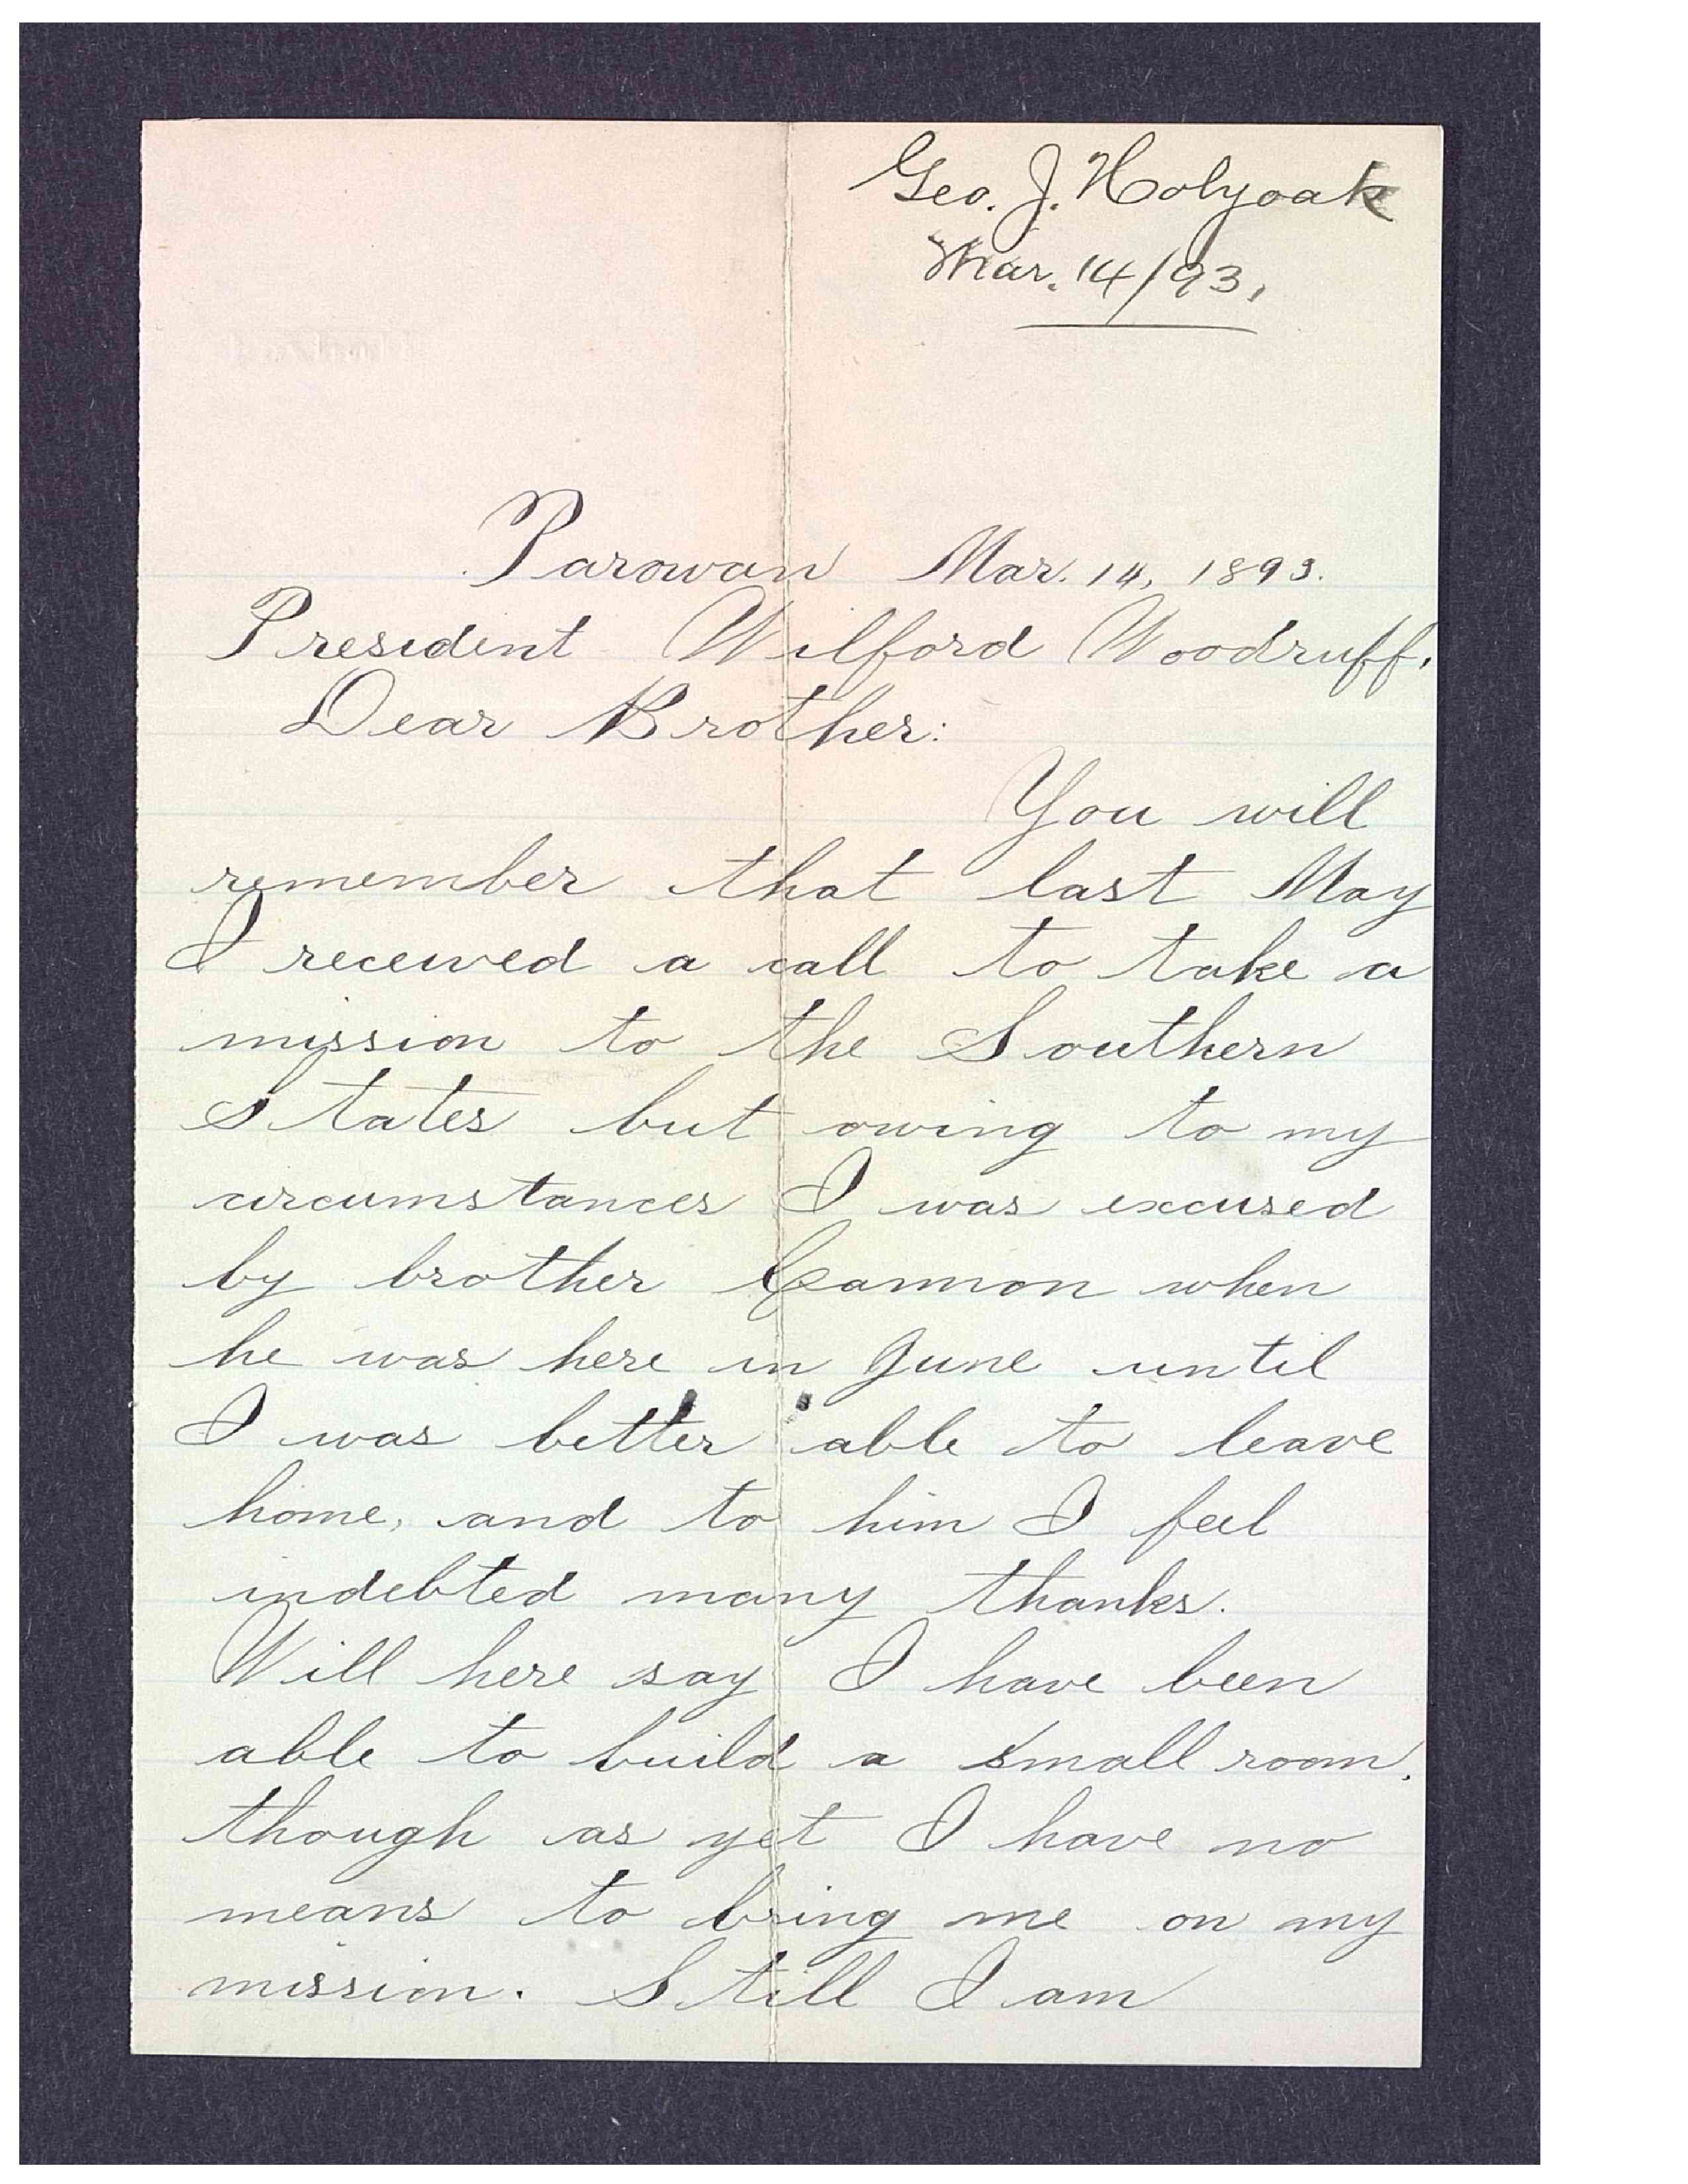 Geo. J. Holyoak
Mar. 14/93,
Parowan Mar. 14, 1893.
President Wilford Woodruff.
Dear Brother:
You will
remember that last May
I received a call to take a
mission to the Southern
States but owing to my
circumstances I was excused
by brother Cannon when
he was here in June until
I was better able to leave
home, and to him I feel
indebted many thanks.
Will here say I have been
able to build a small room.
though as yet I have no
means to bring me on my
mission. Still I am